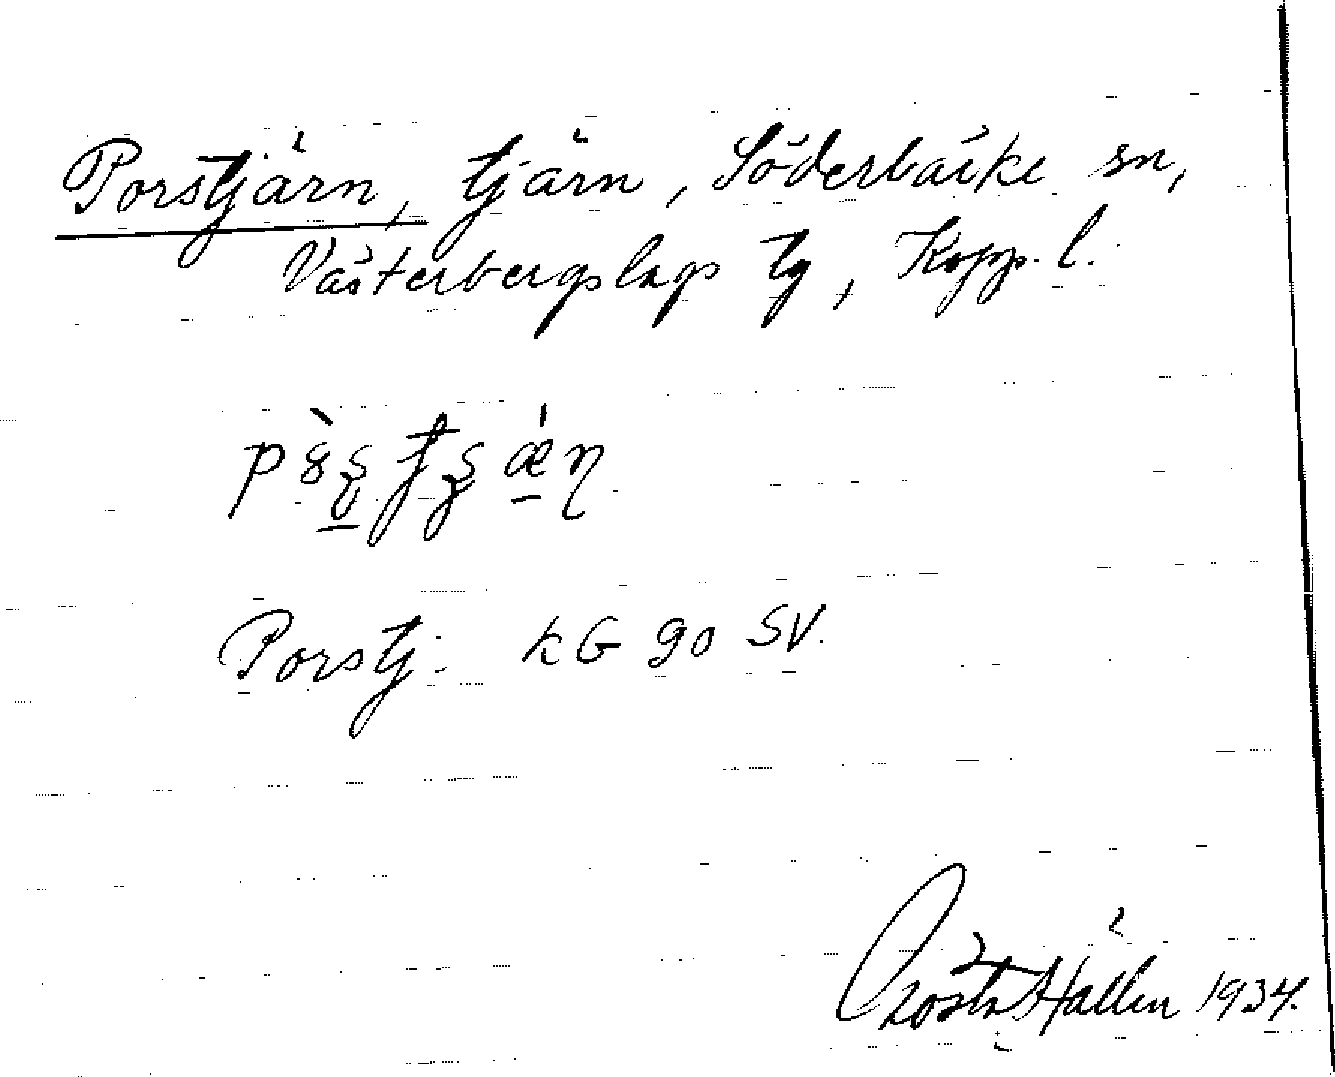 Porstjärn, tjärn, Söderbärke sn,
Västerbergslags tg, Kopp. l.
Porstj: kG 90 SV.
Gösta Hallén 1934.